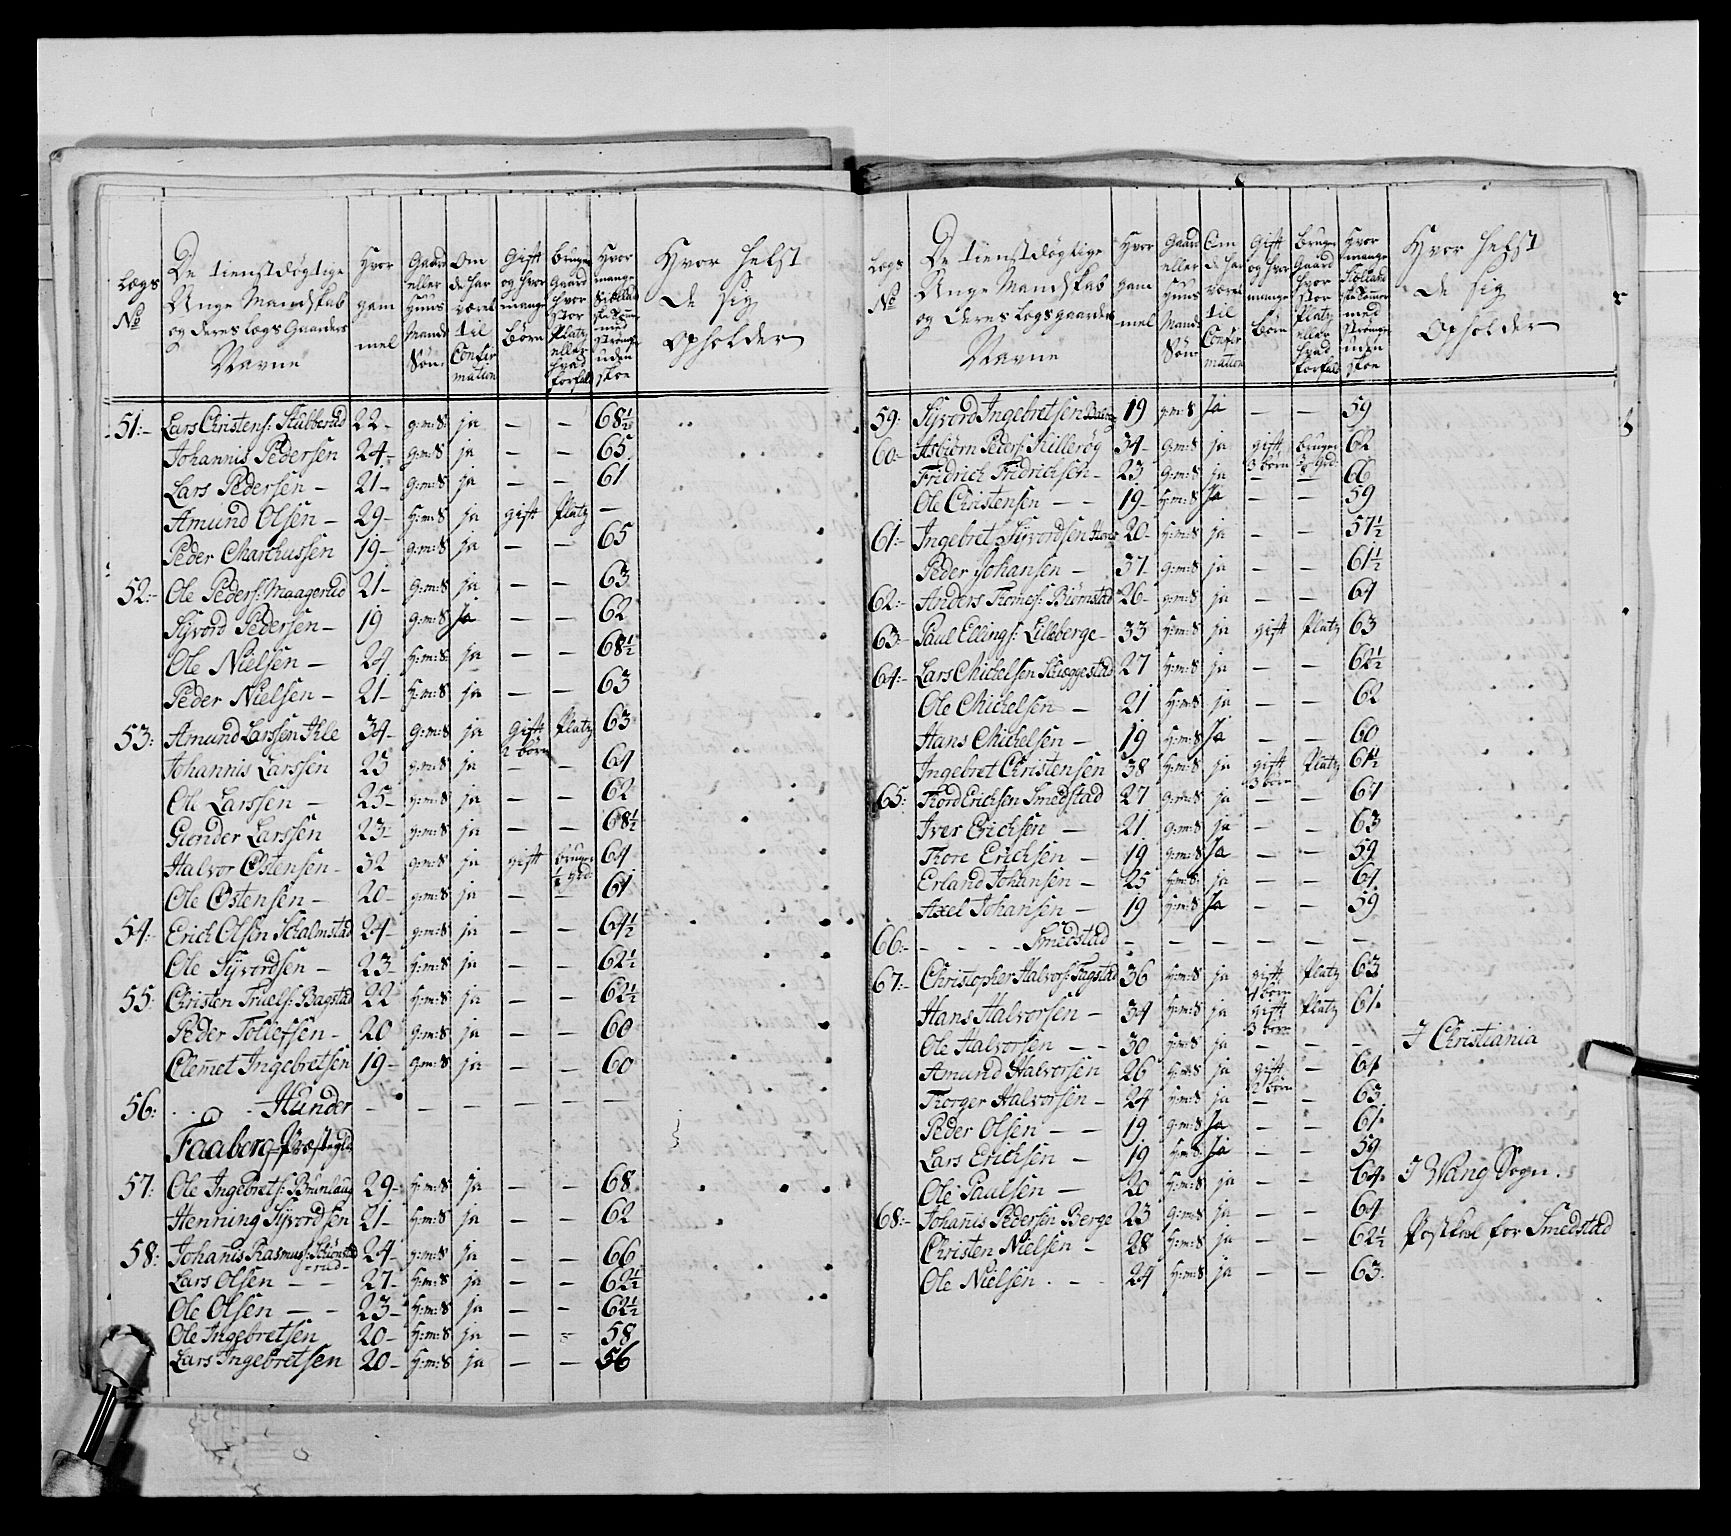 Lægs
No
De tienstdøgtige
Unge Mandskab
og deres Lægs Gaarders
Navne
Hvor
gam
mel
Gaard
eller
Huus
Mands
Søn
Om
de har
været
til
Confir
mation
Gift
og hvor
mange
Børn
bruger
Gaard
hvor
stor
Platz
eller
hvad
forfald
Hvor
mange
med
strømper
uden
skoe
Hvor helst
de sig
opholder
51:- Lars Christens: Stubberud 22- g:m:S ja — — 68½
Johannis Pedersen 24- g:m:S ja — — 65
Lars Pedersen — 21- g:m:S ja — — 61
Amund Olsen — 29- H:m:S ja gift Platz —
Peder Marthussen 19- g:m:S ja — — 65
52:- Ole Peders: Maagerud 21- g:m:S ja — — 63
Syvord Pedersen — 19 g:m:S Ja — — 62
Ole Nielsen — 24 H:m:S ja — — 68½
Peder Nielsen — 21- H:m:S ja — — 63
53: Amund Larssen Ihle 34- g:m:S ja gift Platz 63
2 børn
Johannis Larssen 23 g:m:S ja — — 64
Ole Larssen — 25- g:m:S ja — — 62
Gunder Larssen 23- g:m:S ja — — 68½
Halvor Ostensen — 32 g:m:S ja gift bruger 64
½ grd:
Ole Ostensen — 20- g:m:S ja — — 61
54:- Erich Olsen Schalmstad 24- g:m:S ja — — 64½
Ole Syvordsen — 23- H:m:S ja — — 62½
55: Christen Truels: Bagstad 22- H:m:S ja — — 62½
Peder Tollefsen — 20 g:m:S ja — — 60
Clemmet Ingebretsen 19- g:m:S ja — — 60
56: - Hunder — — — — — —
Faaberg Præstegld
57: Ole Ingebrets: Brunlaug 29- H:m:S ja — — 68
Henning Syvordsen 21- H:m:S ja — — 62
58: Johannis Rasmus: Schönstad 24- H:m:S ja — — 66
rud
Lars Olsen — — 27- H:m:S ja — — 62½
Ole Olsen — — 23- H:m:S ja — — 62½
Ole Ingebretsen 20- H:m:S ja — — 58
Lars Ingebretsen 20- H:m:S ja — — 56
Lægs
No
De tienstdøgtige
Unge Mandskab
og deres Lægs gaarders
Navne
Hvor
gam
mel
Gaard
eller
Huus
Mands
Søn
Om
de har
været
til
Confir
mation
Gift
og hvor
mange
Børn
bruger
Gaard
hvor
stor
Platz
eller
hvad
forfald
Hvor
mange
med
strømper
uden
skoe
Hvor helst
de sig
opholder
59: Syvord Ingebretsen 19 g:m:S Ja — — 59
60:- Asbiørn Peders: Killerøg 34- g:m:S ja gift bruger 62
3 børn grd:
Fridrich Fridrichsen — 23 g:m:S ja — — 66
Ole Christensen — — 19- H:m:S Ja — — 59
61:- Ingebret Syvordsen 20- H:m:S ja — — 57½
Peder Johansen — 31 g:m:S ja — — 61½
62:- Anders Thomes: Biømstad 26- g:m:S ja — — 64
63:- Paul Ellings: Lilleberge — 33 H:m:S ja gift Platz 63
64:- Lars Michelsen Skieggestad 27 H:m:S ja — — 62½
Ole Michelsen — 21 H:m:S ja — — 62
Hans Michelsen — 19 H:m:S Ja — — 60
Ingebret Christensen 38 H:m:S ja gift Platz 61½
3 børn
65: Thord Erichsen Smedstad 27 g:m:S ja — — 64
Iver Erichsen — 21 g:m:S ja — — 63
Thore Erichsen — 19 g:m:S Ja — — 59
Erland Johansen — 25 H:m:S ja — — 64
Axel Johansen — 19 H:m:S Ja — — 59
66:- — — — Smedstad — — — — — —
67:- Christopher Halvors: Fagstad 36 H:m:S ja gift Platz 63
4 børn
Hans Halvorsen — 34 H:m:S ja gift Platz 61
3 børn
Ole Halvorsen — — 30 H:m:S ja — — — I Christiania
Amund Halvorsen 26 H:m:S ja gift — 64
2 børn
Thorger Halvorsen — 24 H:m:S ja — — 63
Peder Olsen — — 19 g:m:S Ja — — 61
Lars Erichsen — 19 H:m:S Ja — — 59
Ole Paulsen — 20 H:m:S ja — — 64 I Wang Sogn.
68:- Johannis Pedersen Berge 23 g:m:S ja — — 64
Christen Nielsen — 28 H:m:S ja — — 62½ Postkal for Smedstad
Ole Nielsen — 24 H:m:S ja — — 63